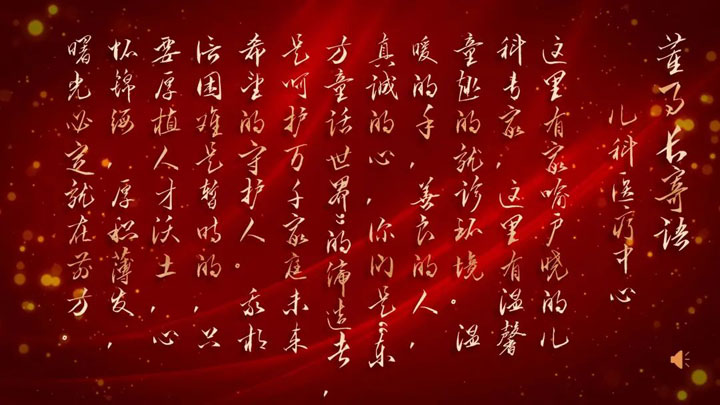 董事长寄语
儿科医疗中心
这里有家喻户晓的儿
科专家，这里有温馨
童趣的就诊环境。温
暖的手，善良的人，
真诚的心，你们是“东
方童话世界”的缔造者，
是呵护万千家庭未来
希望的守护人。我相
信困难是暂时的，只
要厚植人才沃土，心
怀锦绣，厚积薄发，
曙光必定就在前方。